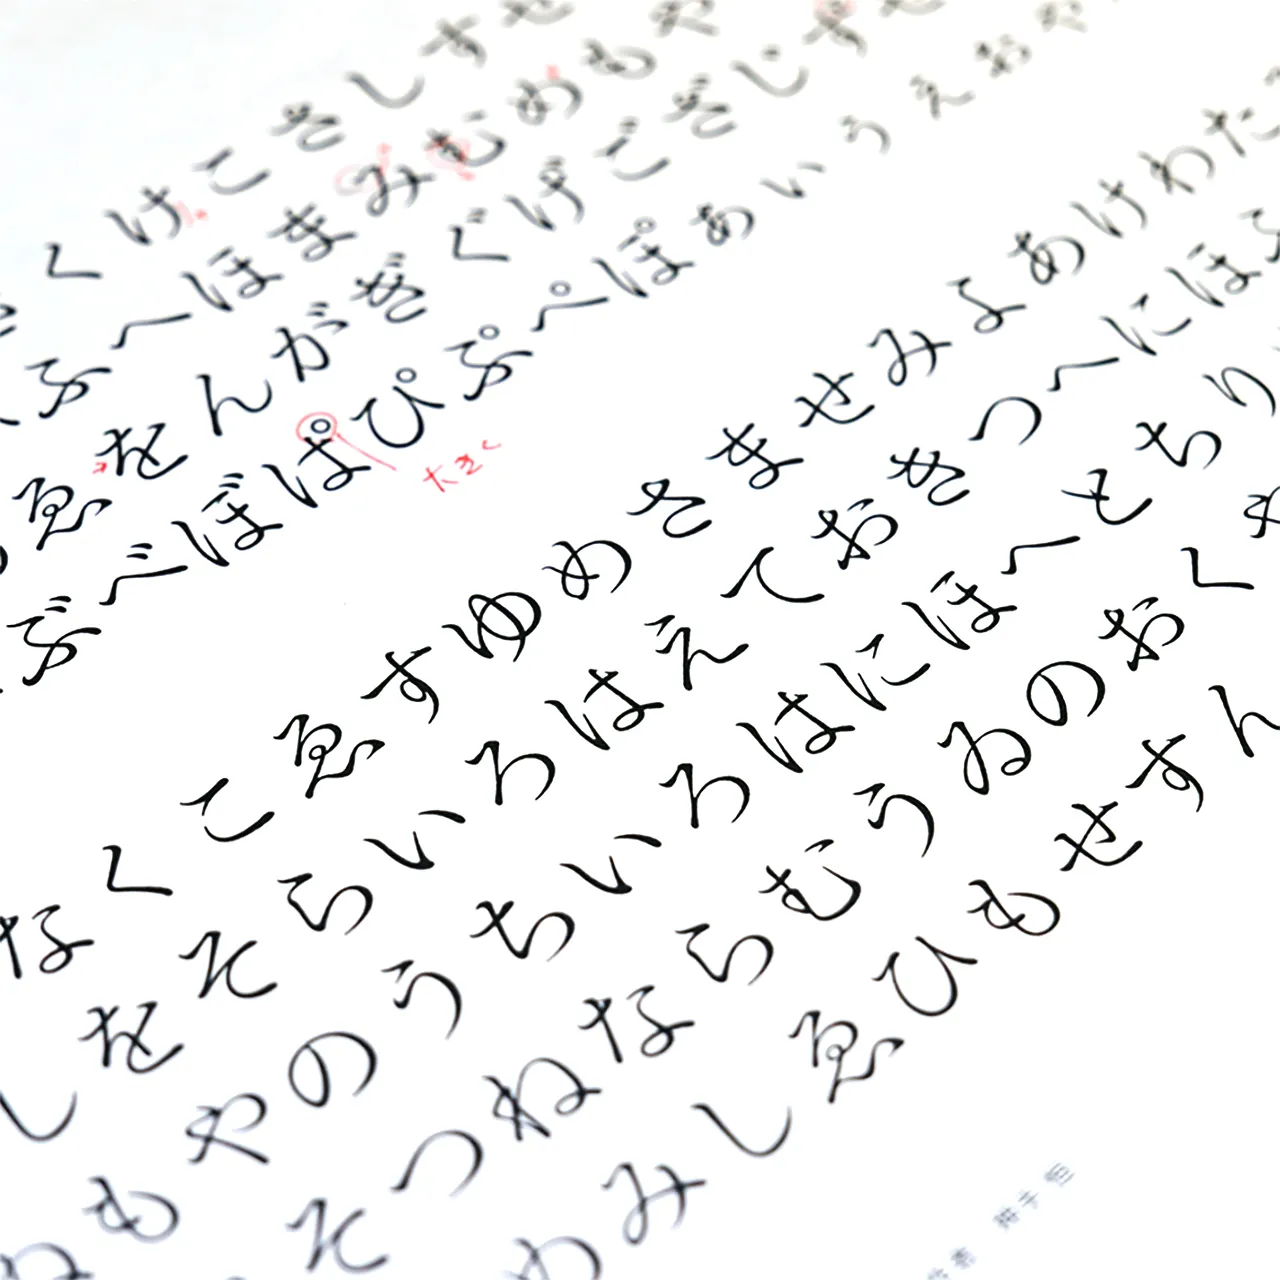 くけこさしすせ
ふへほまみむめもや
ゑをんがぎぐげござじずぜ
ぶべぼぱぴぷぺぽぁぃぅぇぉゃ
大きく
なくこゑすゆめさませみよあけわた
しをそらいろはえておきつへにほふ
もやのうちいろはにほへとちり
そつねならむうゐのおくや
めみしゑひもせすん